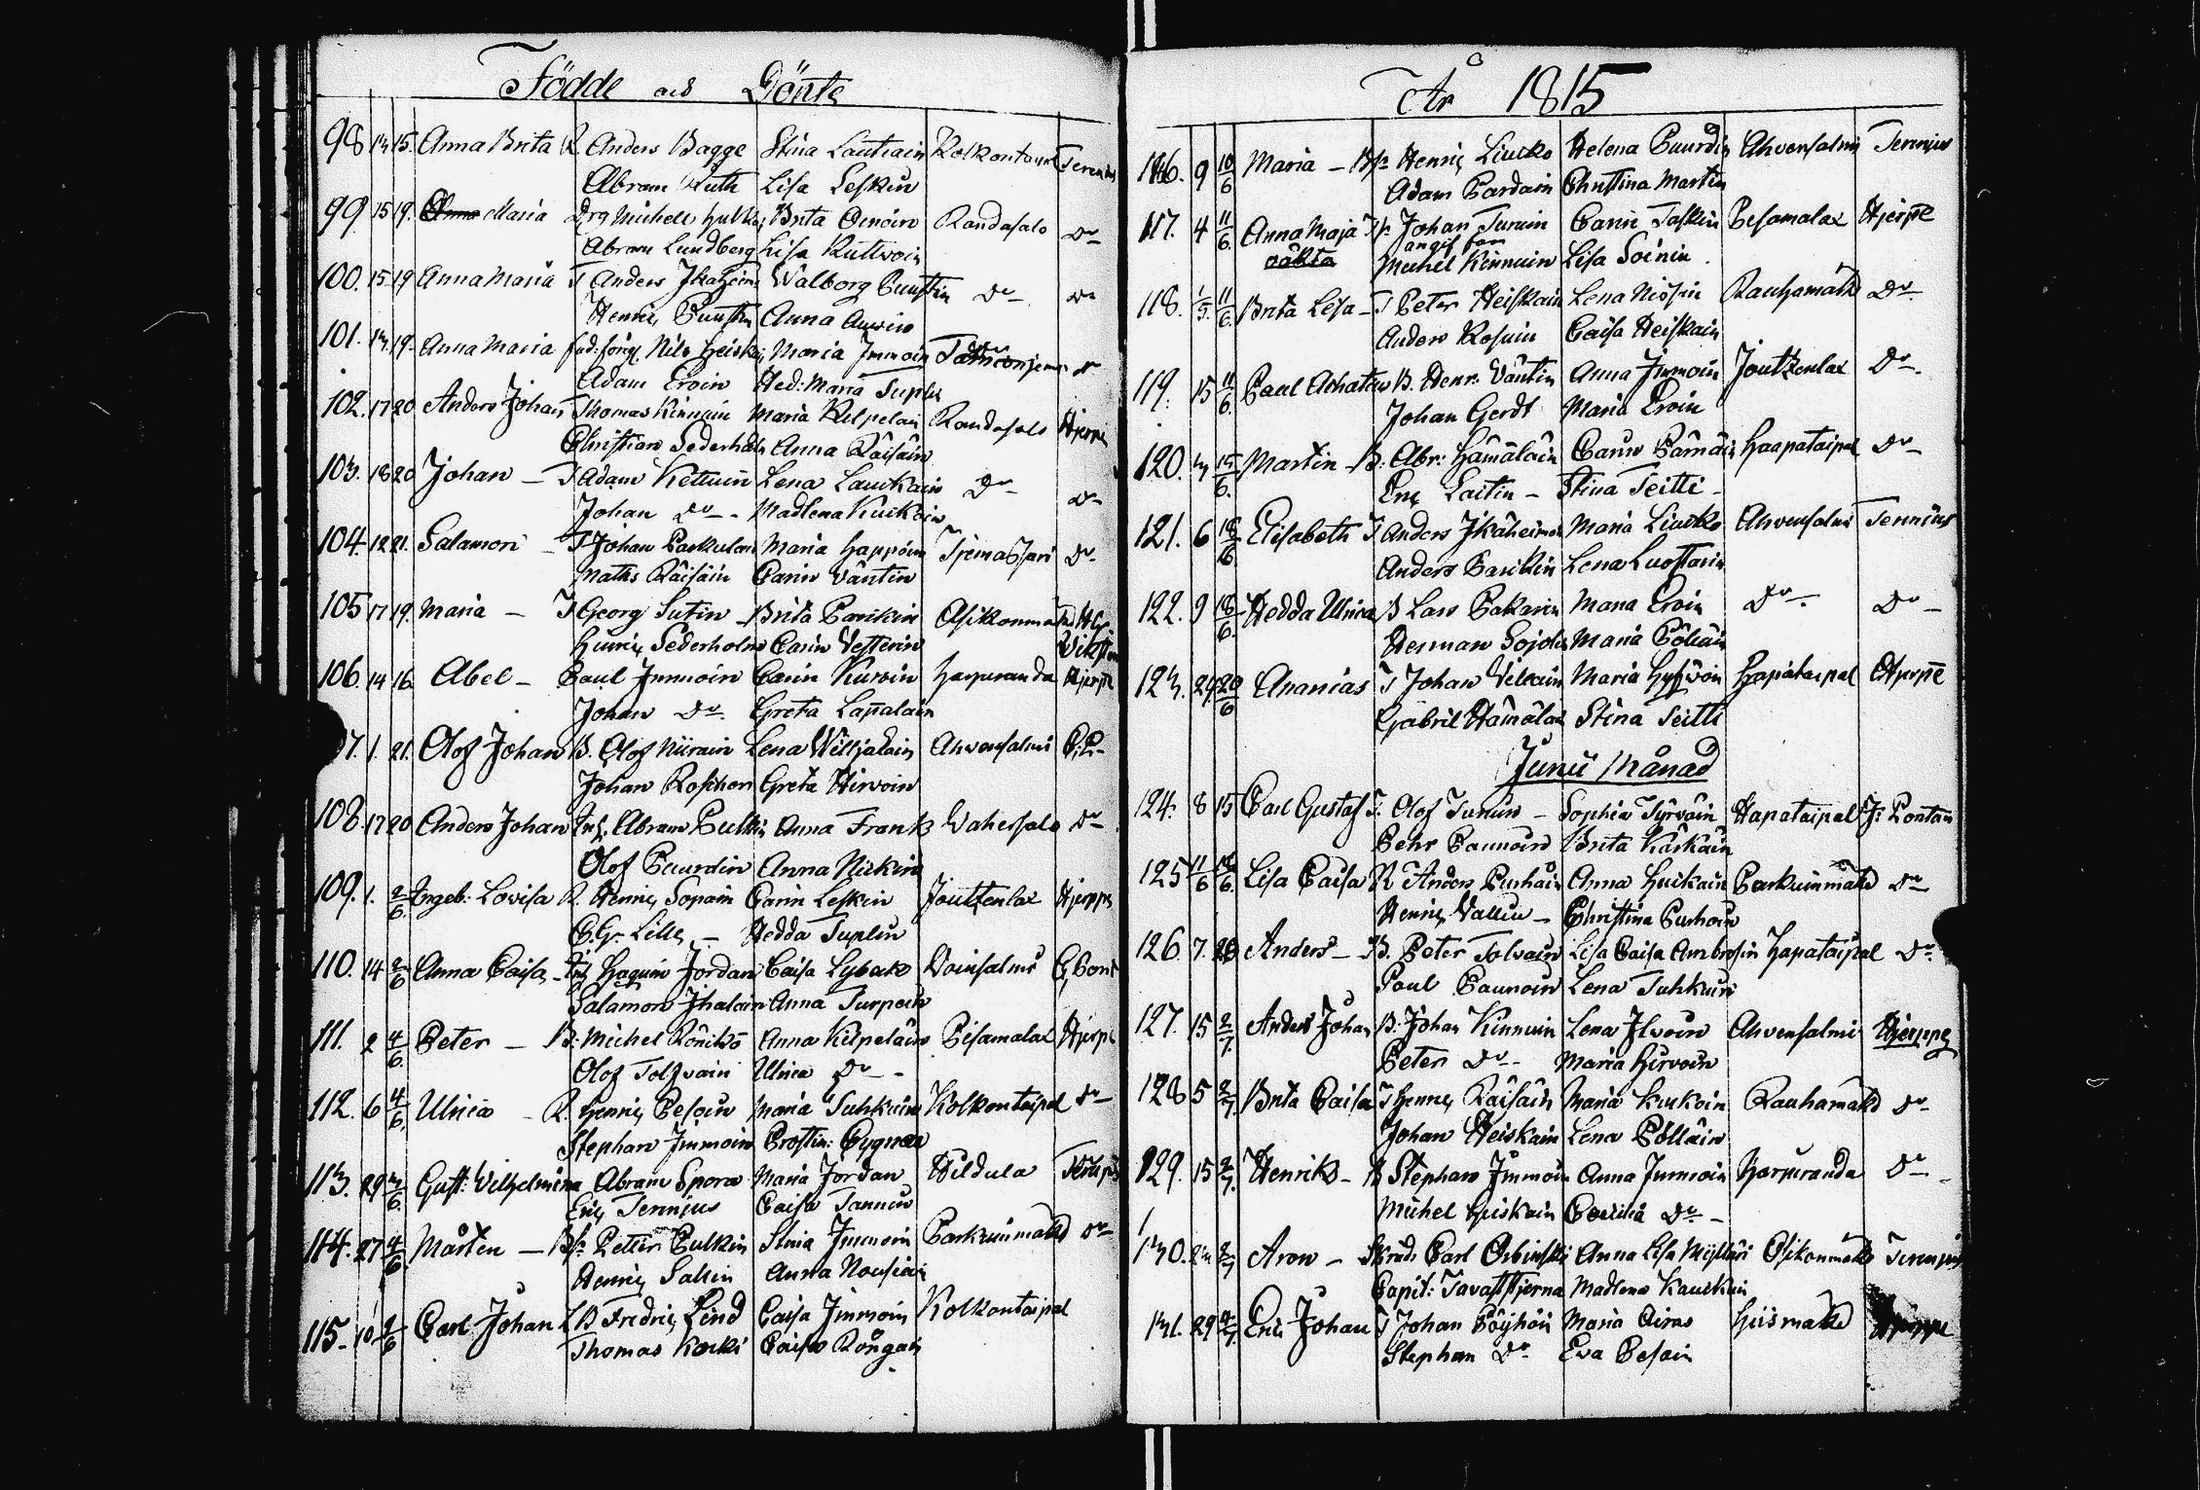 Födde och Döpte
98 13 15. Anna Brita R Anders Bagge Stina Lautiain Kolkontaival Terenius
Abram Ruth Lisa Leskin
99. 15 19. Maria Drg Michell Brita Randasalo Do
Abram Lundberg Lisa Kuttvoin
100. 15 19 Anna Maria T Anders Ikäheim Walborg Puustin Do Do
Henric Puustin Anna Auvin
101. 13 19. Anna Maria Nils Heiskain Maria Immoin Do
Adam Eroin Hed: Maria Suplin
102. 17 20 Anders Johan Thomas Kinnuin Maria Kilpelain Randasalo Hjerpe
Christian Sederholm Anna Räisäin
103. 18 20 Johan — T Adam Kettuin Lena Laukain Do Do
Johan Do - Madlena Kuikoin
104. 12 21. Salamon — T Johan Paskulain Maria Happoin Do
Maths Räisäin Carin Väntin
105 17 19. Maria — T Georg Sutin Brita Parikin Osikonmäki
Henric Sederholm Carin Vesterin
106. 14 16 Abel — Paul Immoin Carin Kurvin Harjuranda Hjerpe
Johan Do Greta Lapalain
107. 1. 21. Olof Johan B. Olof Niirain Lena Willijalain Ahvensalmi C. P.
Johan Roschier Greta Hirvoin
108. 17 20 Anders Johan Inh. Abram Pulkin Anna Frank Wahersalo Do
Olof Puurdin Anna Nickin
109. 1. 2/6 Ingeb. Lovisa R. Henric Sopain Carin Leskin Joutzenlax Hjerppe
C. Gr. Lille — Hedda Tuplin
110. 14 2/6 Anna Caisa Inh Haquin Jordan Caisa Lybeck Voinsalmi
Salamon Ihalain Anna Turpein
111. 2 4/6 Peter — B. Michel Rönikö Anna Kilpeläin Pisamalax Hjerpe
Olof Tolfvain Ulrica Do -
112. 6 4/6 Ulrica - R. Henric Pesoin Maria Suhkuin Kolkontaipal Do
Stephan Immoin Cristin: Cygnæa
113. 29 3/6 Gust: Wilhelmina Abram Spora Maria Jordan Hildula Terenius
Eric Terenius Caisa Tannin
114. 27 4/6 Mårten — Bs. Petter Pulkin Stina Immoin Parkuinmäki Do
Henric Sallin Anna Nousiain
115. 10 9/6 Carl Johan B Fredric Lind Caisa Immoin Kolkontaipal
Thomas Kocki Caisa Rongain
År 1815
116. 9 10/6 Maria — Bs. Henric Liucko Helena Puurdin Ahvensalmi Terenius
Adam Pardain Christina Martin
117. 4 11/6 Anna Maja Johan Turuin Carin Taskin Pesamalax Hjerpe
oäkta angif far
Michel Kinnuin Lisa Soinin
118. 1/5 11/6 Brita Lisa — T Peter Heiskain Lena Nisoin Rauhamäki Do
Anders Rosuin Caisa Heiskain
119. 15 11/6 Paul Achatius B. Henr. Väntin Anna Immoin Joutzenlax Do
Johan Gerdt Maria Eroin
120. 3 15/6 Martin B. Abr: Hämäläin Carin Pämäin Haapataipal Do
Eric Laitin — Stina Teitti -
121. 6 18/6 Elisabeth T Anders Ikäheimoin Maria Liucko Ahvensalmi Terenius
Anders Parikin Lena Luostarin
122. 9 18/6 Hedda Ulrica B Lars Pakarin Maria Eroin Do Do
Herman Sojolin Maria Pölläin
123. 24 29/6 Ananias T Johan Veleain Maria Hyfvöin Hapataipal Hjerpe
Gabriel Hämäläin Stina Teitti
Junii Månad
124. 8 15 Carl Gustaf T. Olof Turuin — Sophia Tyrväin Hapataipal J: Pontan
Pehr Paunoin Brita Kärkäin
125 11/6 18/6 Lisa Caisa R Anders Purhoin Anna Huikain Parkuinmäki Do
Henric Vallin — Christina Purhoin
126. 7. 26 Anders — B. Peter Tolvain Lisa Caisa Ambrosin Hapataipal Do
Paul Paunoin Lena Tuhkuin
127. 15 2/7 Anders Johan B: Johan Kinnuin Lena Ilvoin Ahvensalmi Hjerppe
Peter Do - Maria Hirvoin
128 5 2/7 Brita Caisa T Henric Räisäin Maria Kuikoin Rauhamäki Do
Johan Heiskain Lena Pölläin
129. 15 2/7 Henrik — B Stephan Immoin Anna Immoin Harjuranda Do
Michel Heiskain Cecilia Do -
130. 23 2/7 Aron — Skräd: Carl Orbinski Anna Lisa Osikonmäki Terenius
Capit: Tavaststjerna Madlena Kaukain
131. 29 4/7 Eric Johan T Johan Pöyhöin Maria Airas Hiismäki Hjerppe
Stephan Do Eva Pesoin